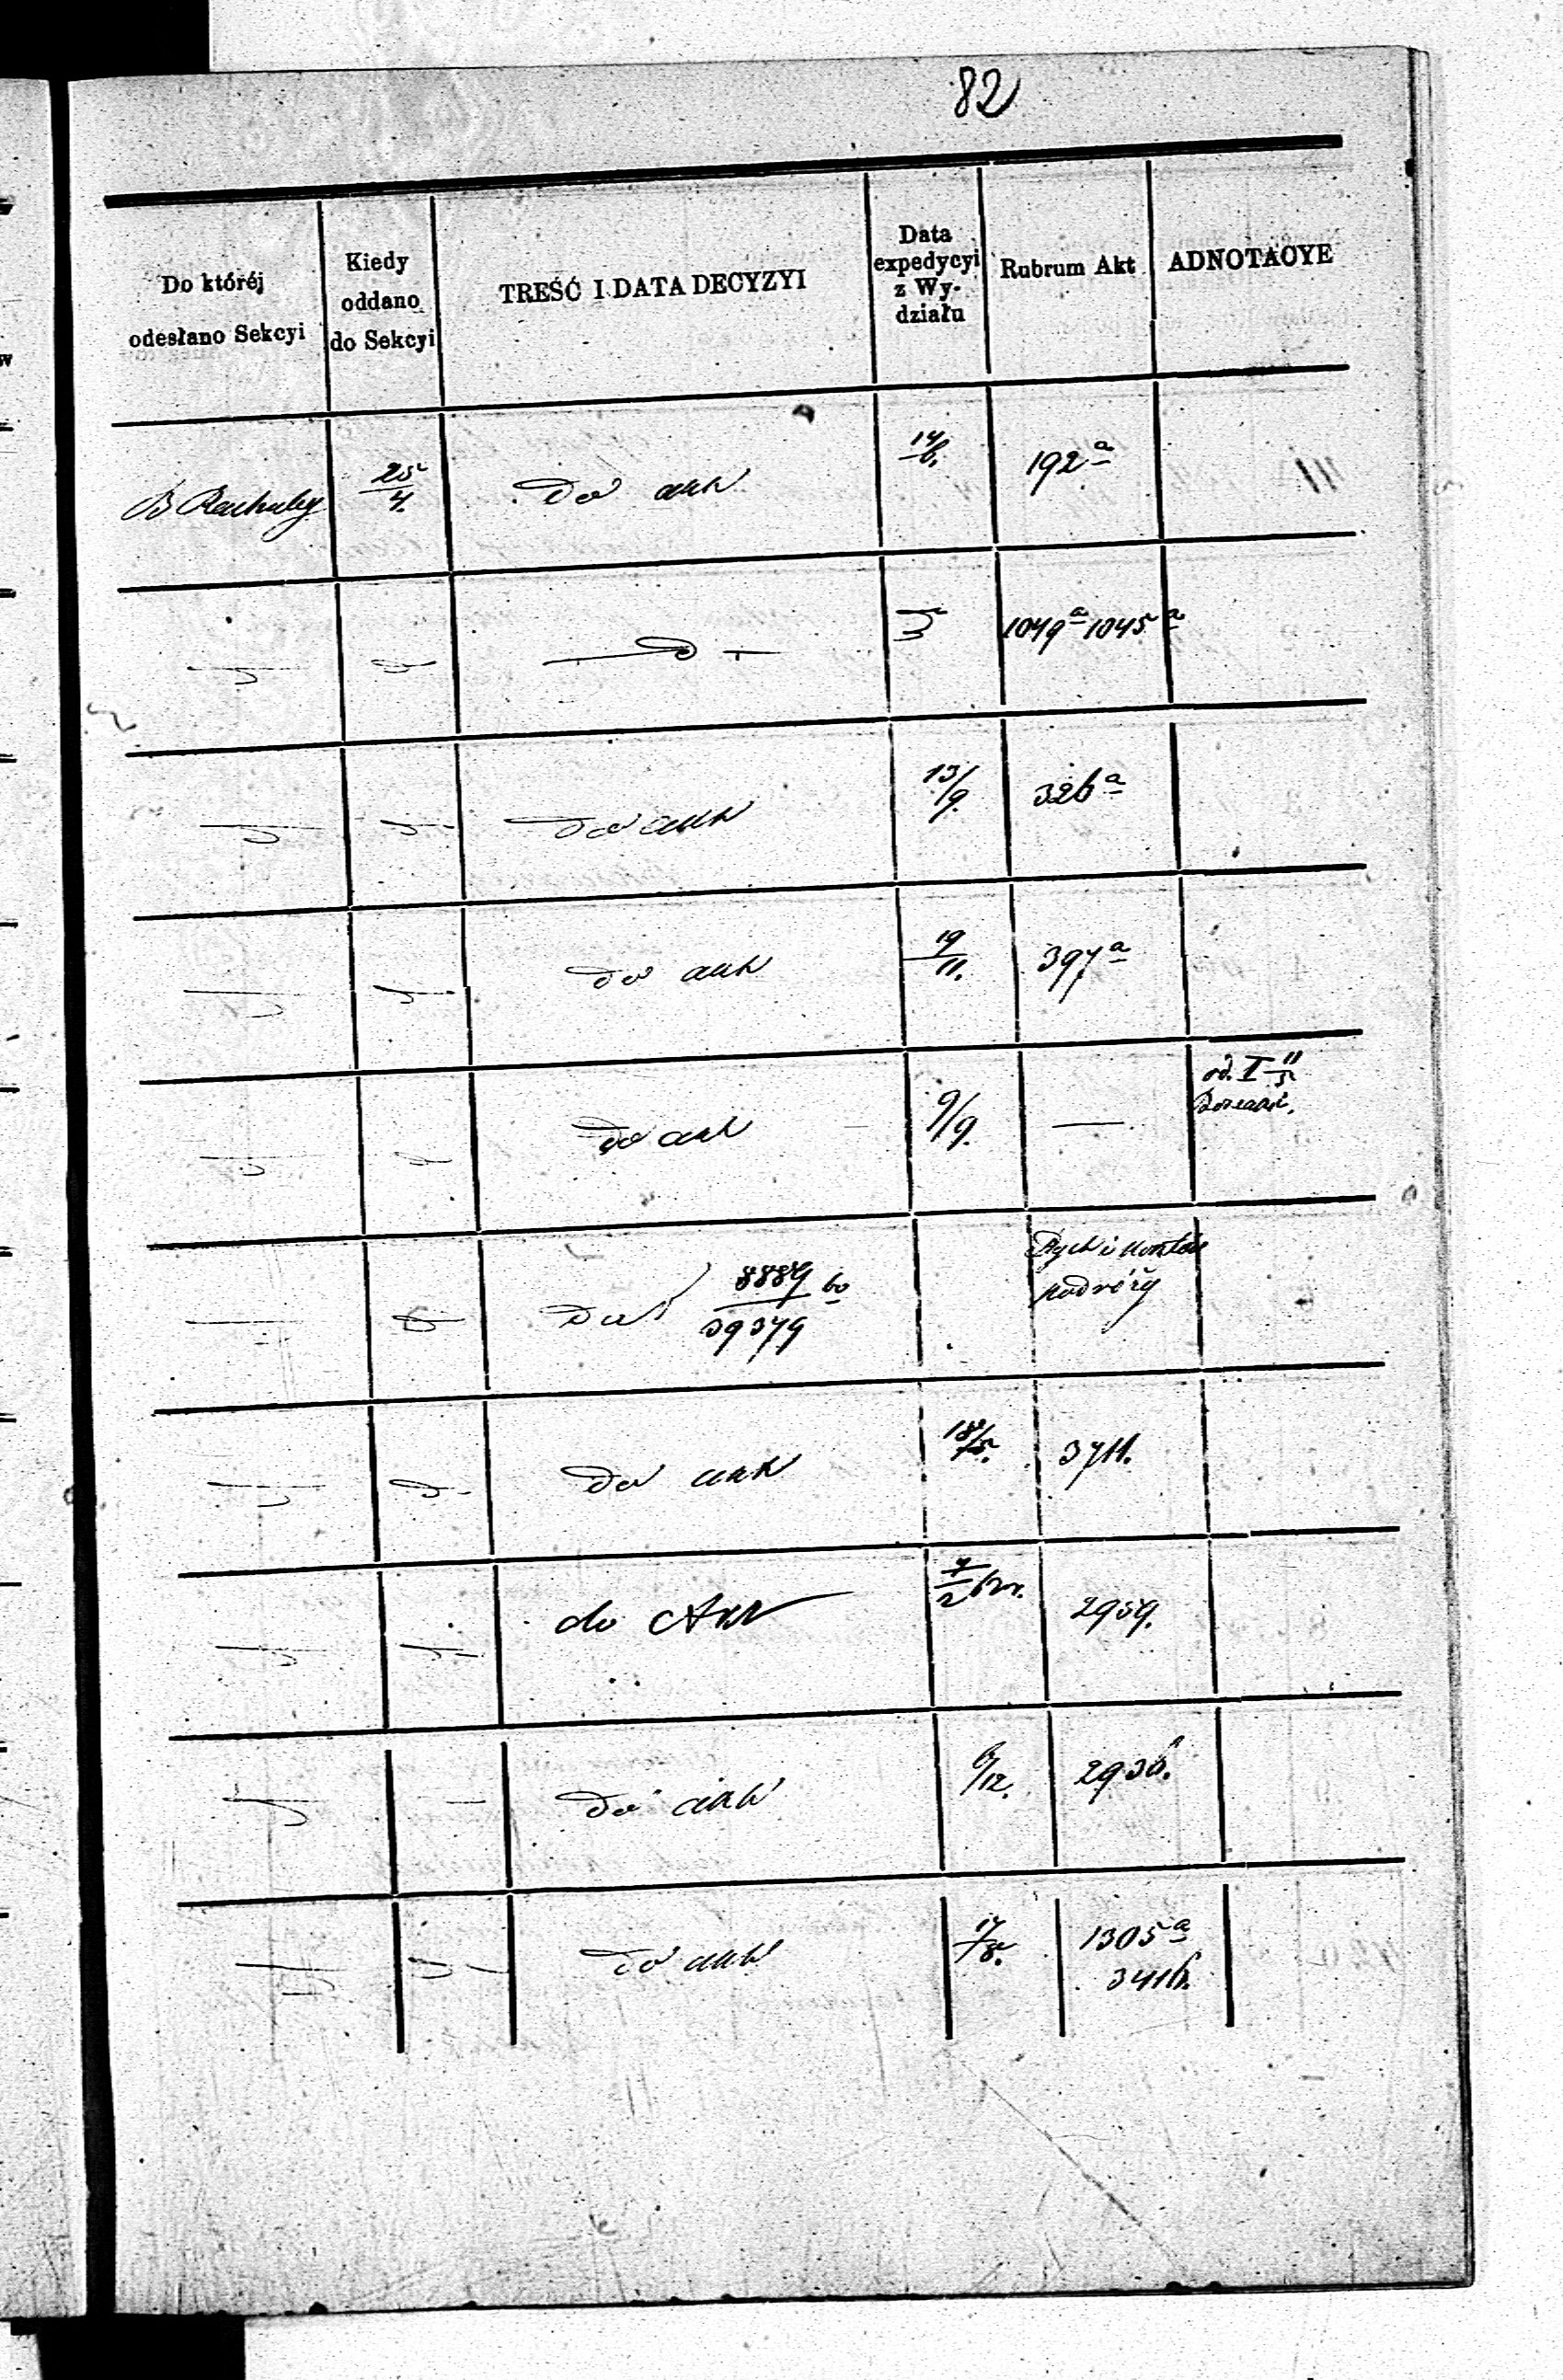 82
Do któréj
odesłano Sekcyi
Kiedy
oddano
do Sekcyi
TREŚĆ I DATA DECYZYI
Data
expedycyi
z Wy-
działu
Rubrum Akt
ADNOTACYE
B Rachuby
25/4.
Do akt
14/6.
192 a
1049 a 1045 a
do akt
13/9.
326 a
do akt
19/11.
397 a
do akt
9/9.
—
od. I
do 8889 60
39379
podróży
do akt
18/5.
3711.
do Akt
7/2
2959.
do akt
6/12.
2936.
do akt
17/8.
1305 a
3416.